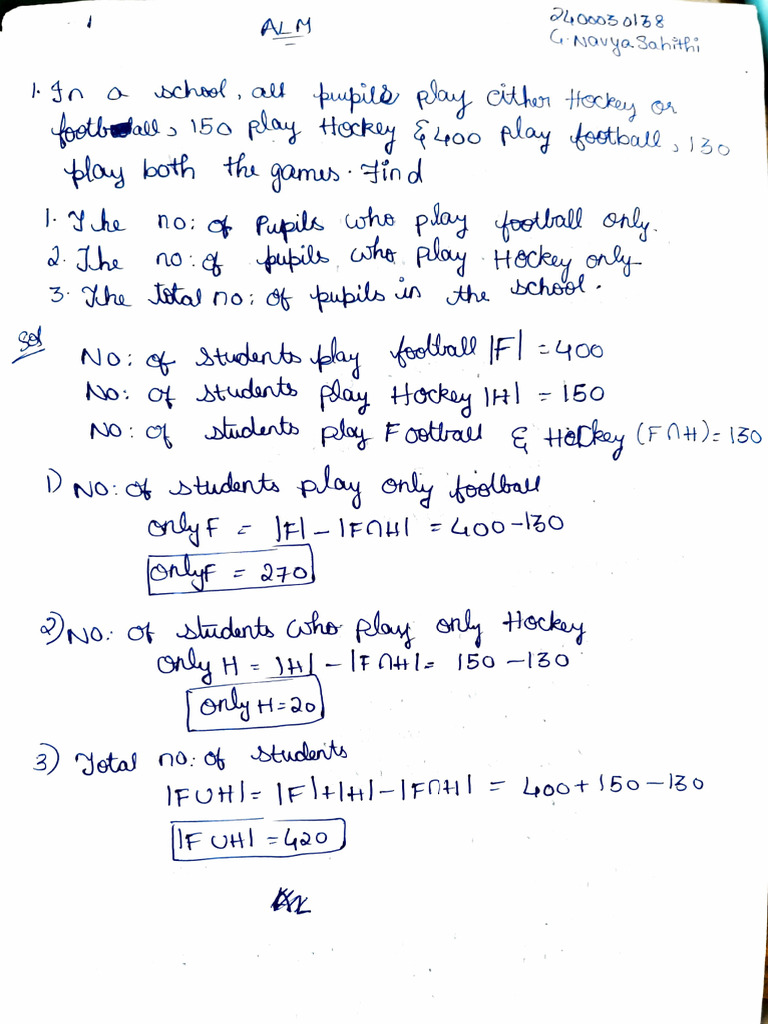 1
ALM
2400030138
G. Navya Sahithi
1. In a school, all pupils play either Hockey or
football, 150 play Hockey & 400 play football, 130
play both the games. Find
1. The no: of Pupils who play football only.
2. The no: of pupils who play Hockey only
3. The total no: of pupils in the school.
Sol
No: of students play football |F| = 400
No: of students play Hockey |H| = 150
No: of students play Football & Hockey (F∩H) = 130
1) No: of students play only football
only F = |F| - |F∩H| = 400 - 130
only F = 270
2) No: of students who play only Hockey
only H = |H| - |F∩H| = 150 - 130
only H = 20
3) Total no: of students
|F∪H| = |F| + |H| - |F∩H| = 400 + 150 - 130
|F∪H| = 420